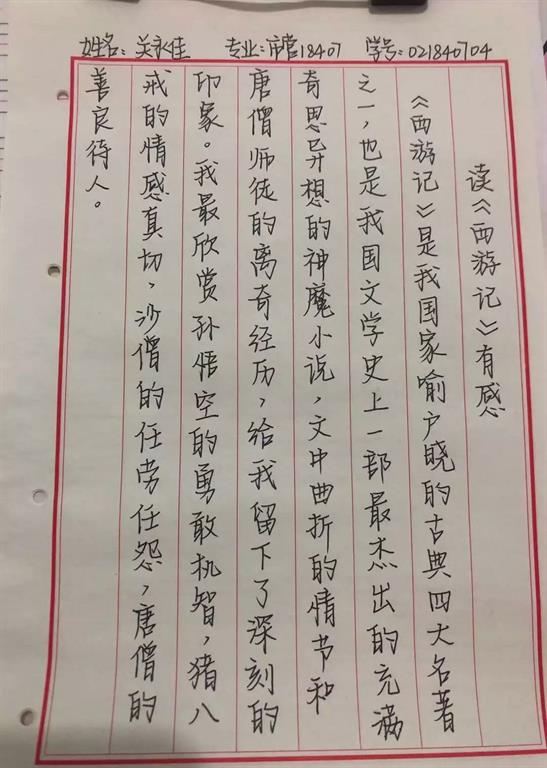 姓名：关永佳 专业：市营18407 学号：021840704
读《西游记》有感
《西游记》是我国家喻户晓的古典四大名著
之一，也是我国文学史上一部最杰出的充满
奇思异想的神魔小说，文中曲折的情节和
唐僧师徒的离奇经历，给我留下了深刻的
印象。我最欣赏孙悟空的勇敢机智，猪八
戒的情感真切，沙僧的任劳任怨，唐僧的
善良待人。